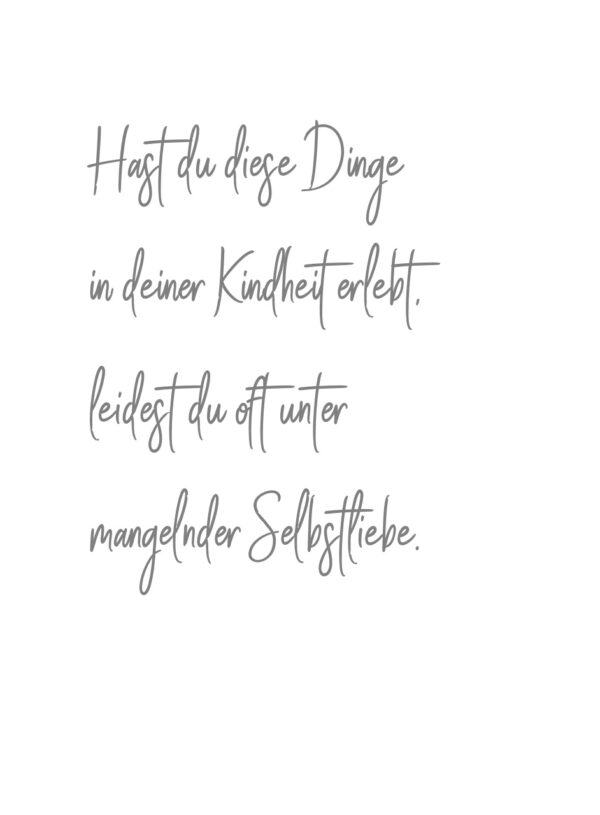 Hast du diese Dinge
in deiner Kindheit erlebt,
leidest du oft unter
mangelnder Selbstliebe.